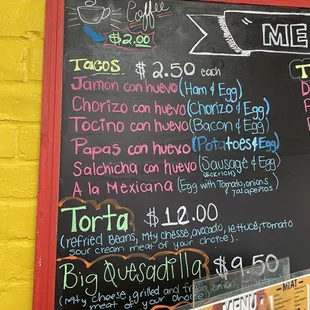 Coffee
$2.00
ME
TACOS $2.50 each
Jamón con huevo (Ham & Egg)
Chorizo con huevo (Chorizo & Egg)
Tocino con huevo (Bacon & Egg)
Papas con huevo (Potatoes & Egg)
Salchicha con huevo (Sausage & Egg)
A la Mexicana (Egg with Tomato, onions
& jalapeños)
Torta $12.00
(refried Beans, Mty cheese, avocado, lettuce, tomato
sour cream meat of your choice).
Big Quesadilla $9.50
(Mty cheese, grilled and
meat of your choice)
MENU
MEAT